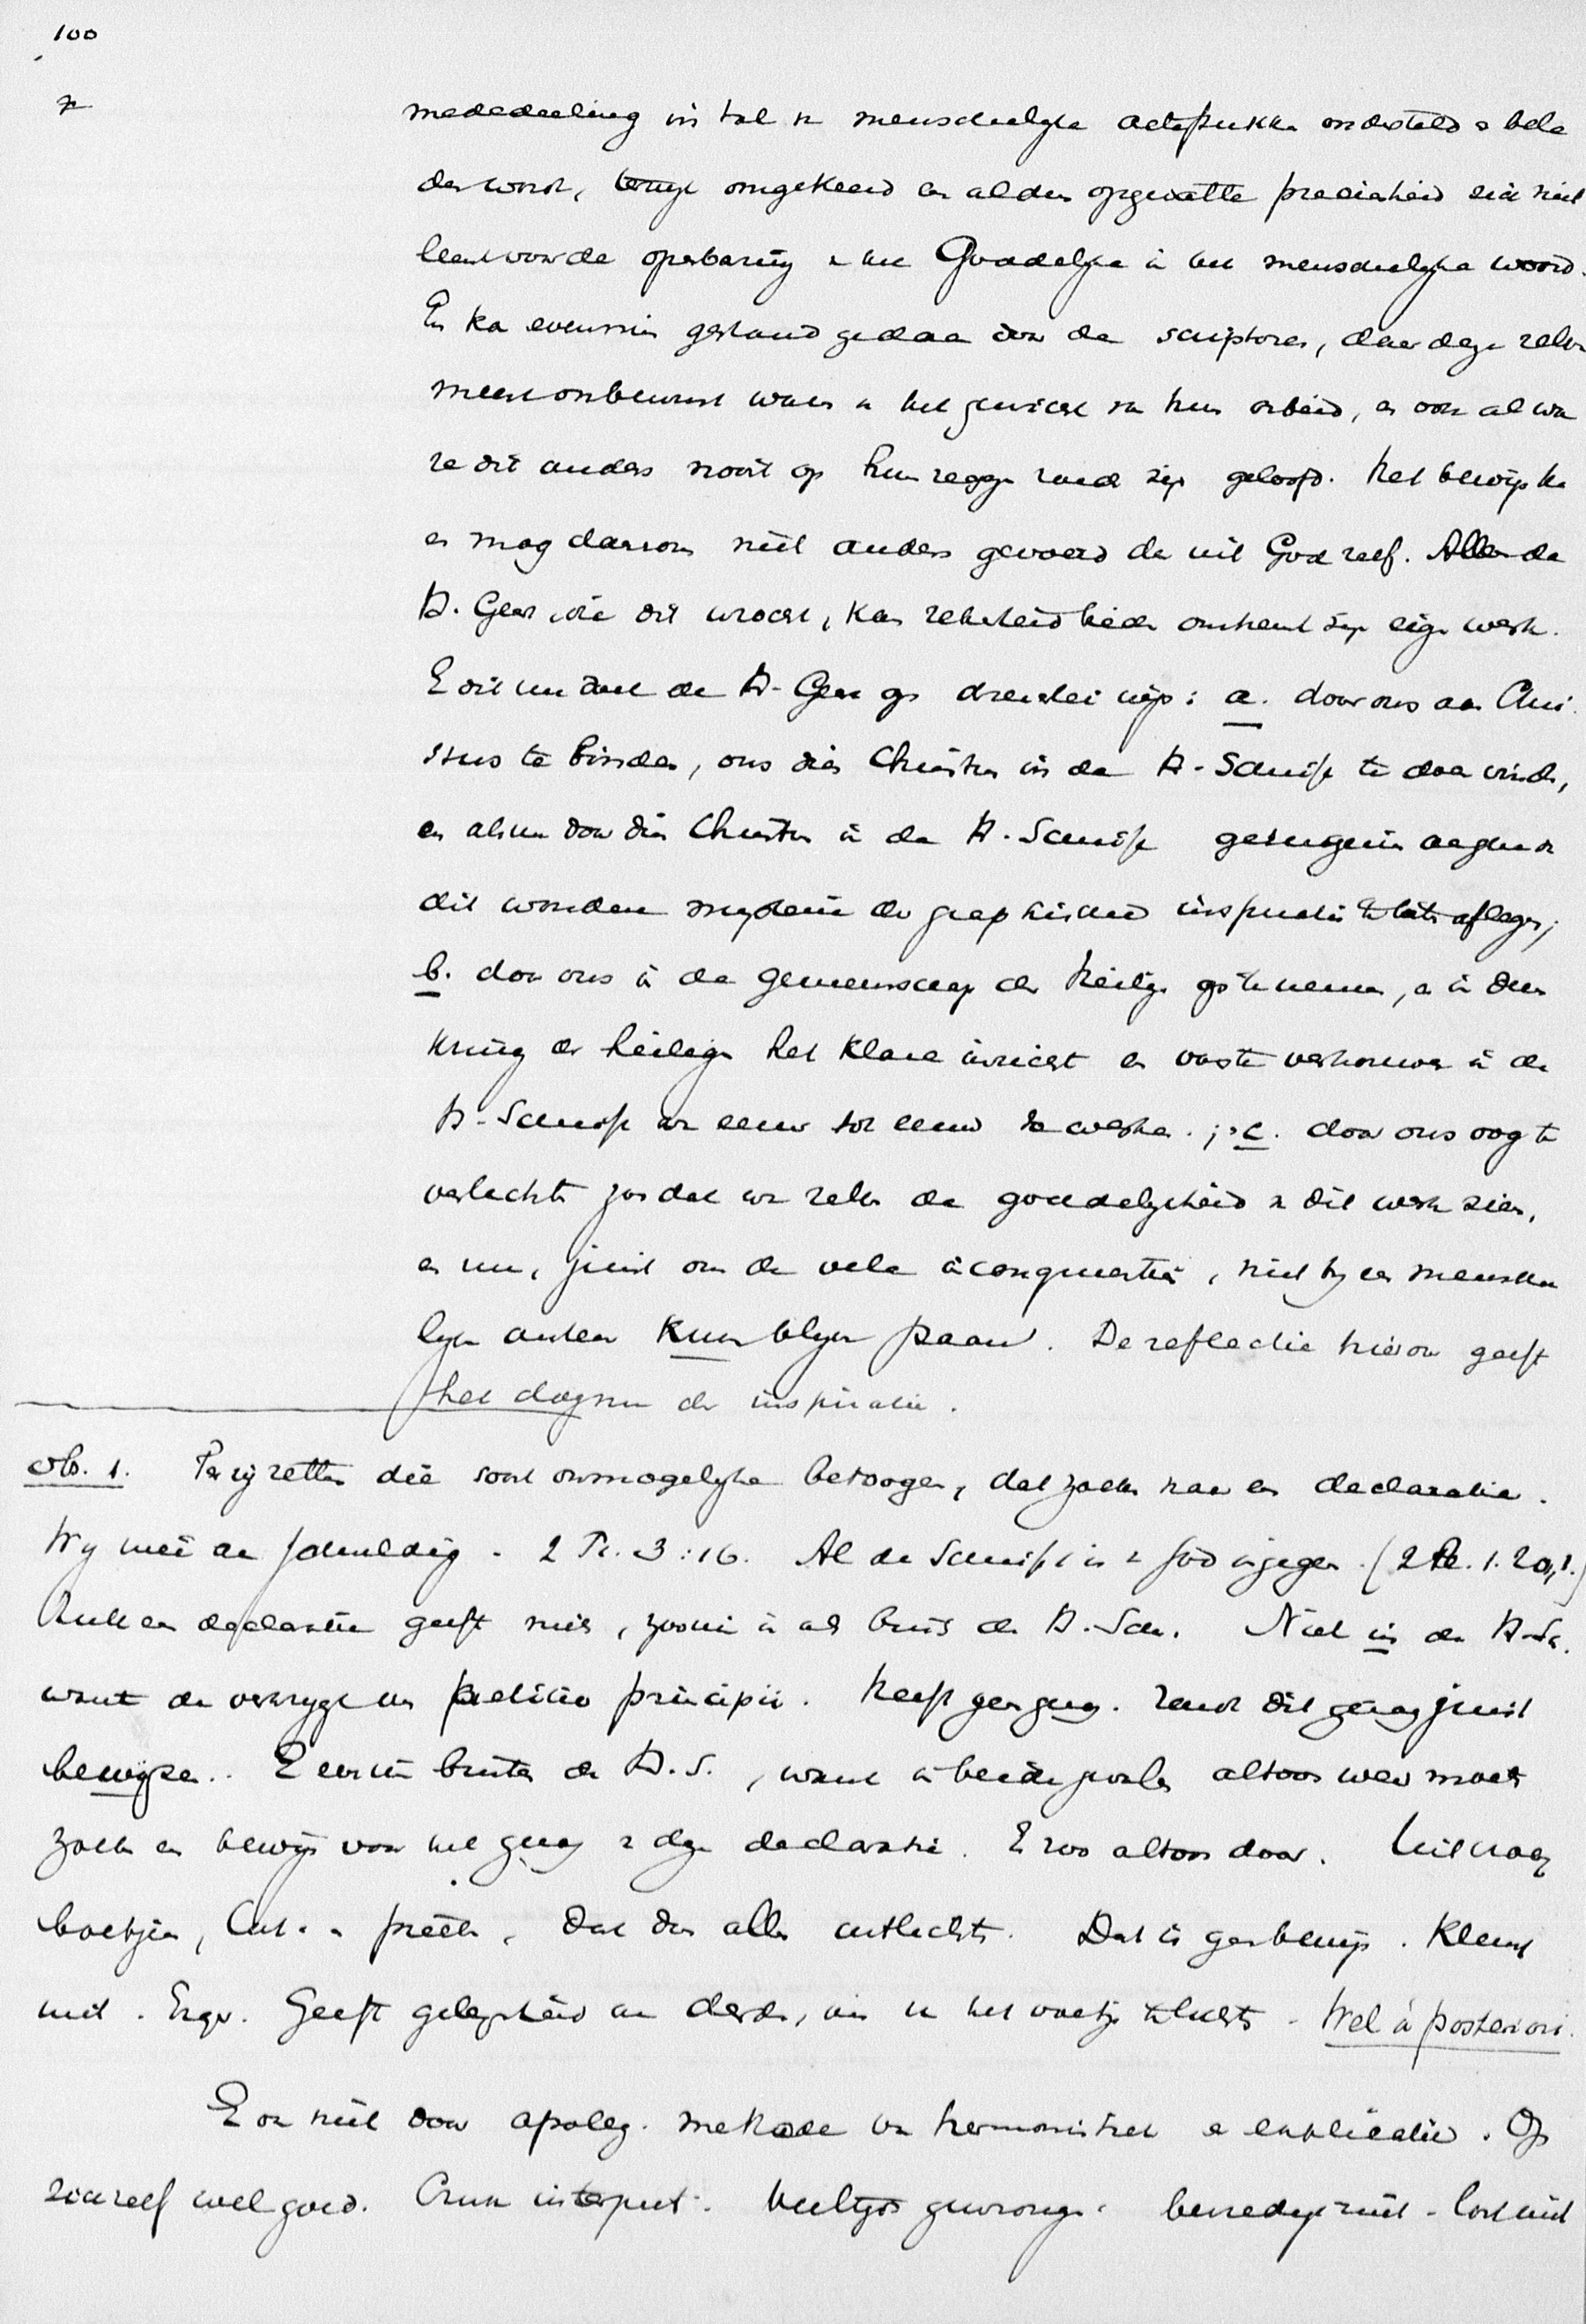 100
mededeeling in tal van menschelyke onderstelt & bele
der wordt, terwyl omgekeerd een aldus opgevatte praecisheid zich niet
leent voor de openbaring van het Goddelyke in het menschelyke woord.
En kan evenmin gestand gedaan door de scriptores, daar deze zelven
meest onbewust waren van het gewicht van hun arbeid, en ook al wa
re dit anders nooit op hun zeggen zoude zyn geloofd. Het bewys kan
en mag daarom niet anders gevoerd dan uit God zelf. Alleen de
H. Geest die dit wrocht, kan zekerheid bieden omtrent zyn eigen werk.
En dit nu doet de H. Geest op drieërlei wys: a. door ons aan Chri
stus te binden, ons dien Christus in de H. Schrift te doen vinden,
en alsnu door dien Christus in de H. Schrift getuigenis aangaande
dit wondere mysterie der graphische inspiratie te laten afleggen;
b. door ons in de gemeenschap der heiligen op te nemen, en in dien
kring der heiligen het klare inzicht en vaste vertrouwen in de
H. Schrift van eeuw tot eeuw te werken. ; c. door ons oog te
verlichten zoodat we zelven de goddelykheid van dit werk zien,
en nu, juist om de vele incongruentiën, niet by een mensche
lyken auteur kunnen blyven staan. De reflectie hierover geeft
het dogma der inspiratie.
Ob. 1. Ter zy zetten die soort onmogelyke betoogen, dat zoeken naar een declaratie.
Wy met de schuldig. 2 Ti. 3:16. Al de Schrift is van God ingegeven. (2 Pe. 1. 20,1.)
Zulk een declaratie geeft niets, zoowel in als buiten de H. Sch. Niet in de H. Sc.
want dan verkrygt men petitio principii. Heeft geen gezag. Zoudt dit gezag juist
bewyzen. Evenmin buiten de H.S., want in beide gevallen altoos weer moet
zoeken een bewys voor het gezag van deze declaratie. En zoo altoos door. Uit vraag
boekjen, Cat. en preeken, Dat is geen bewys. Klemt
niet. Ergo. Geeft gelegenheid aan derden, om u het voetje te lichten. Wel à posteriori.
En ook niet door apoleg. methode van harmonistiek en explicatie. Op
zichzelf wel goed. interpret. Veeltyds gewrongen. bevredigt niet. lost niet